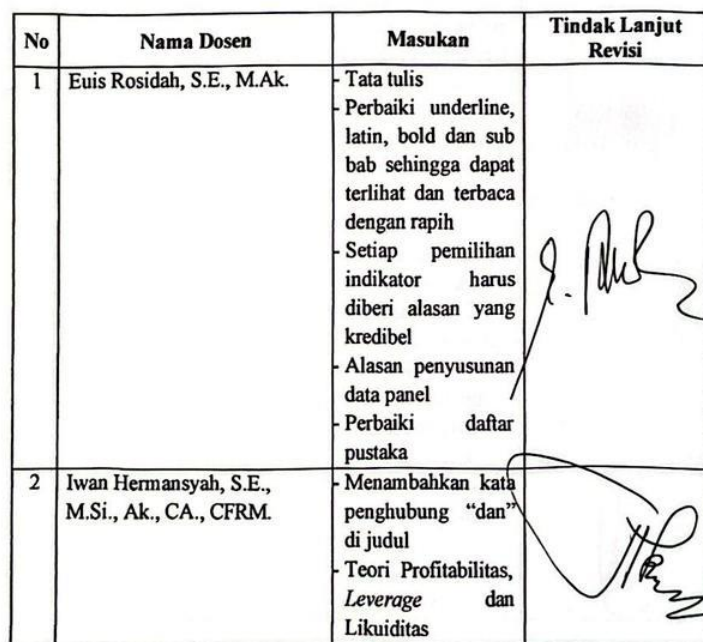 No Nama Dosen Masukan Tindak Lanjut
Revisi
1 Euis Rosidah, S.E., M.Ak. - Tata tulis
- Perbaiki underline,
latin, bold dan sub
bab sehingga dapat
terlihat dan terbaca
dengan rapih
- Setiap pemilihan
indikator harus
diberi alasan yang
kredibel
- Alasan penyusunan
data panel
- Perbaiki daftar
pustaka
2 Iwan Hermansyah, S.E., - Menambahkan kata
M.Si., Ak., CA., CFRM. penghubung “dan”
di judul
- Teori Profitabilitas,
Leverage dan
Likuiditas